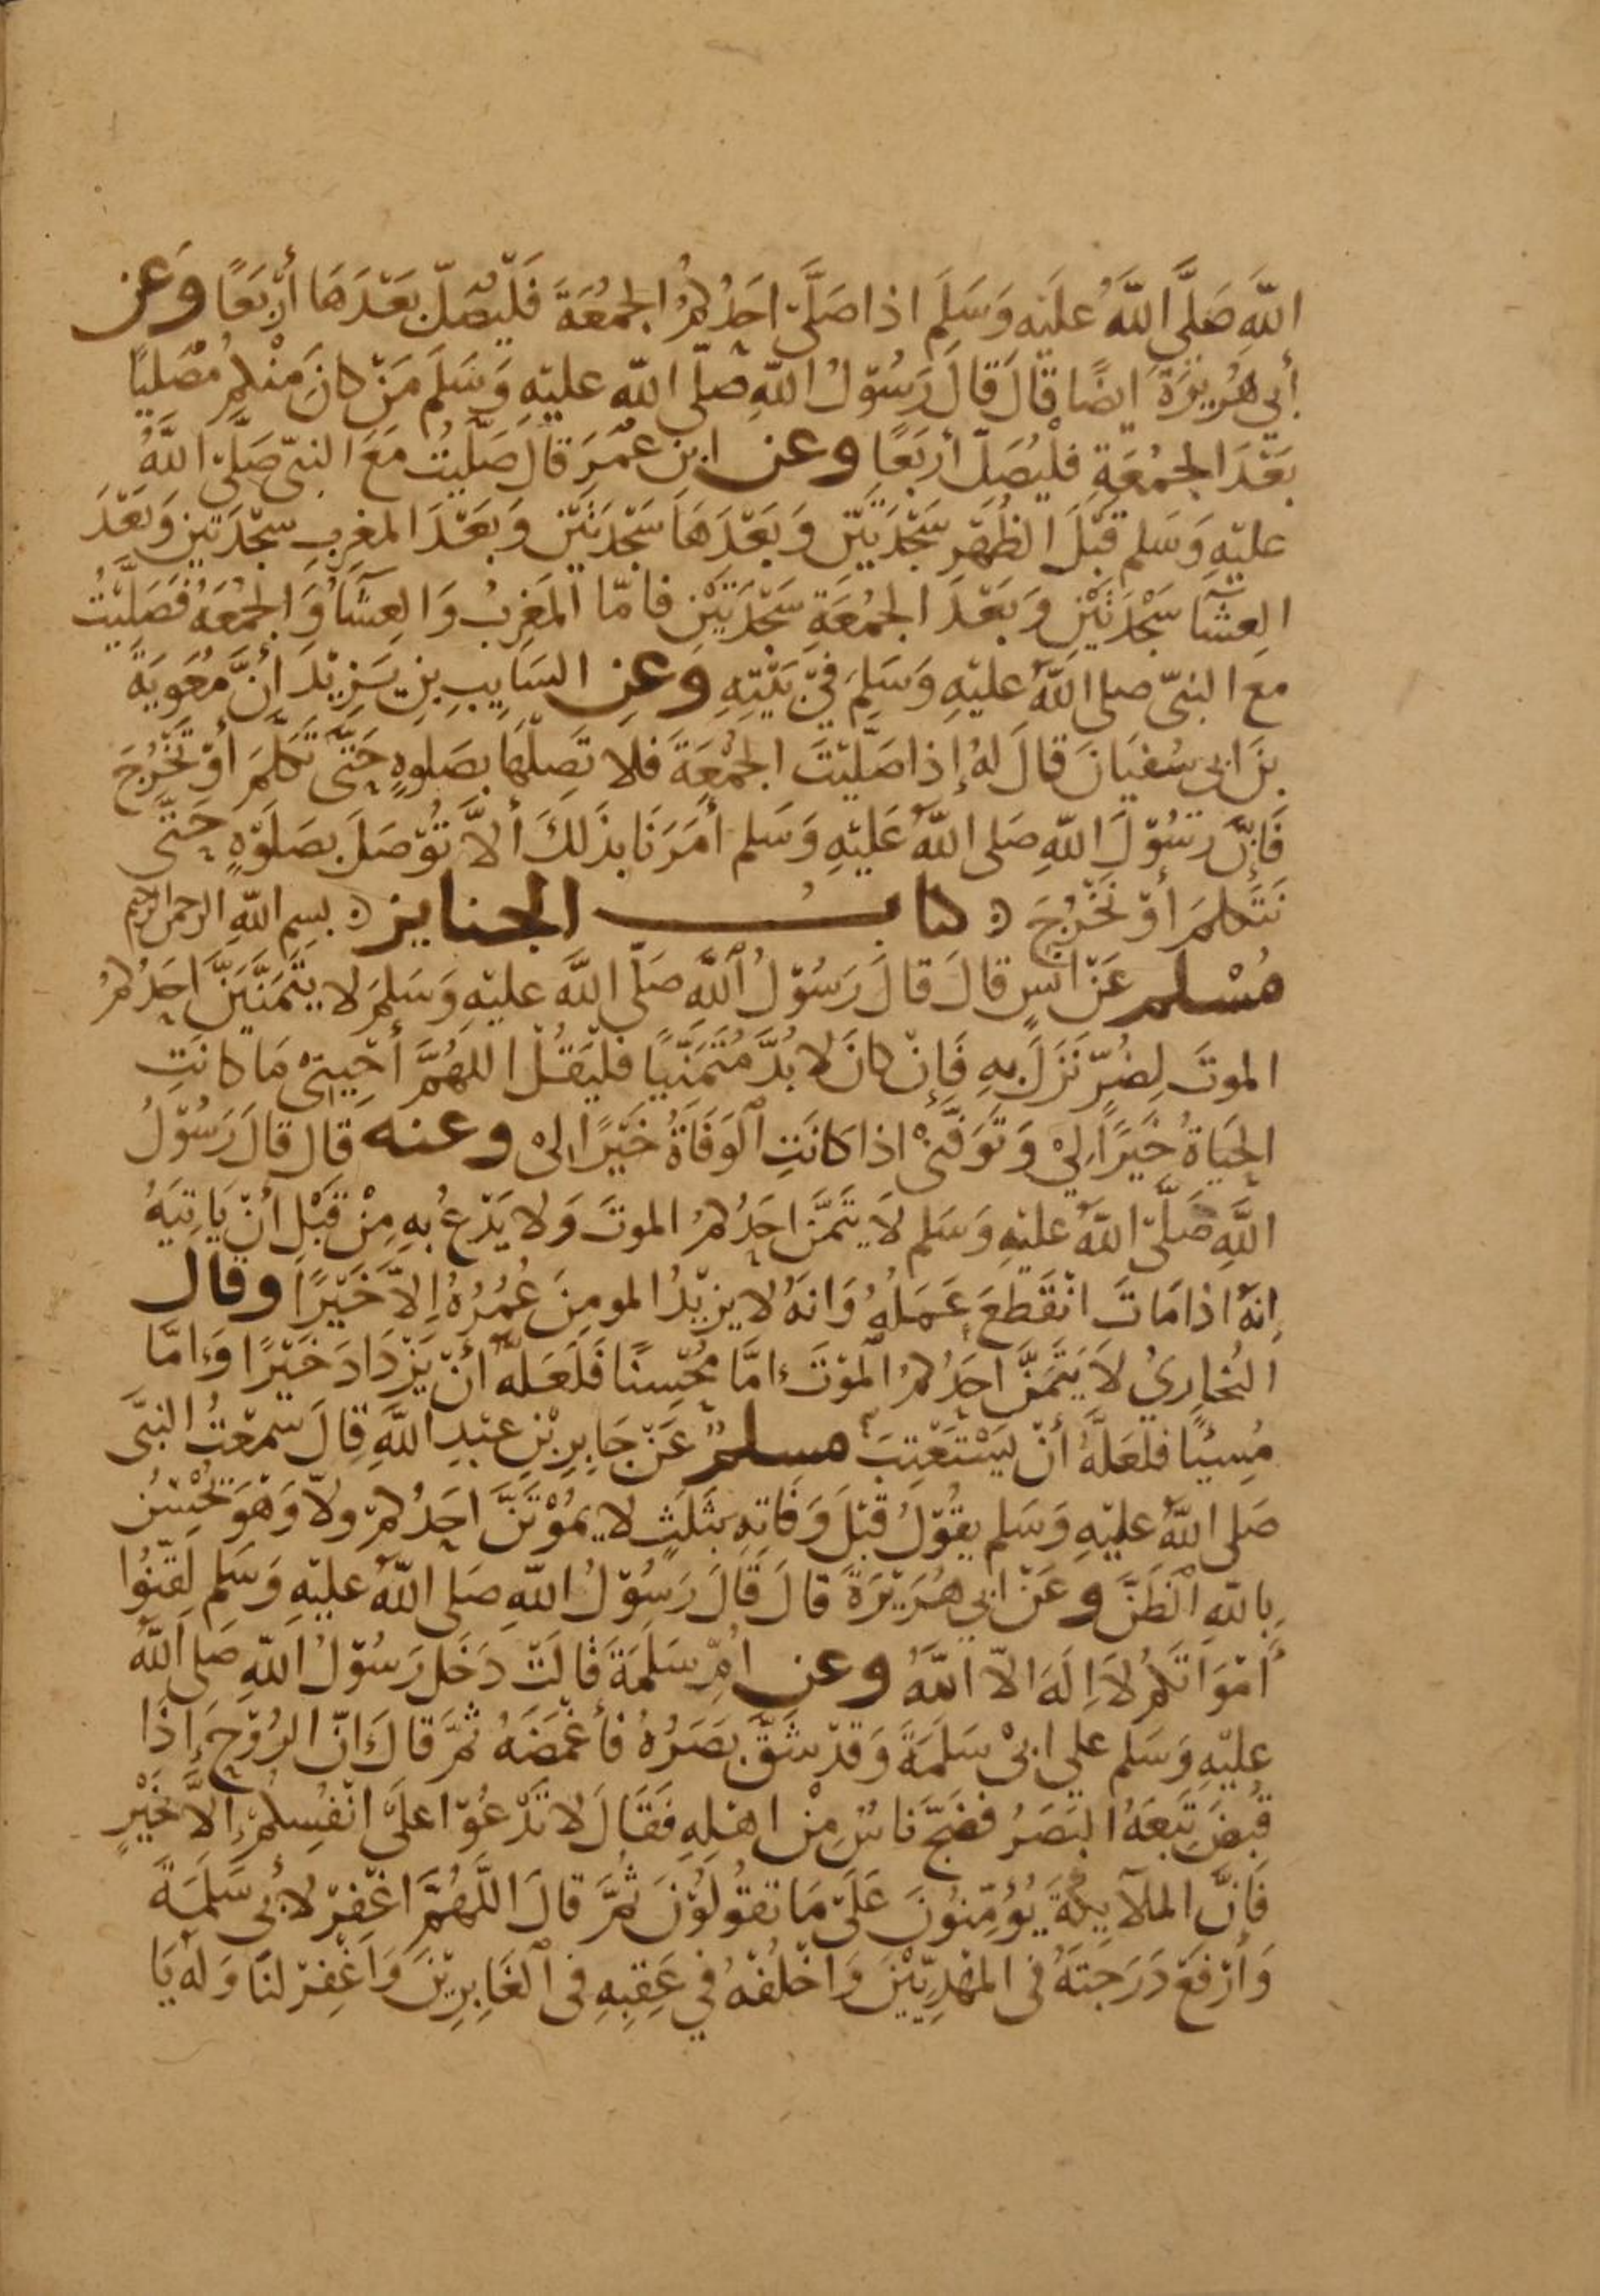 اللَّهِ صَلَّى اللَّهُ عَلَيْهِ وَسَلَّمَ اذا صَلَّى احَدُكُمُ الجُمُعَةَ فَلْيُصَلِّ بَعْدَهَا أَرْبَعًا وَعَن
أبي هُرَيْرَةَ ايضًا قَالَ قَالَ رَسُوْلُ اللَّهِ صَلَّى اللَّه عليْهِ وَسَلَّمَ مَنْ كانَ مِنْكم مُصَلِّيًا
بَعْدَ الجُمُعَةِ فَلْيُصَلِّ أرْبَعًا وعن ابن عُمَرَ قالَ صَلَّيْتُ مَعَ النبىّ صَلَّى اللَّهُ
عليْهِ وَسَلم قَبْلَ الظُهْرِ سَجْدَتَيْنِ وَبَعْدَهَا سَجْدَتَيْنِ وَبَعْدَ المغرِبِ سجْدَتَين وَبَعْدَ
العِشَآ سَجْدَتَيْنِ وَبَعْدَ الجُمُعَةِ سَجْدَتَيْنِ فامّا المَغرِبُ وَالعِشَآُ وَالجُمُعَةُ فَصَلَّيْتُ
معَ النبىّ صلى اللَّهُ عليْهِ وَسَلَّمَ فِيْ بَيْتِهِ وَعَنِ السَايِبِ بنِ يَزِيْدَ أنَّ مُعَوِيَةَ
بنَ ابى سُفيَانَ قالَ لهُ إذا صَلَّيْتَ الجُمُعَةَ فلا تَصِلْهَا بصَلوةٍ حَتَّى تَكَلَّمَ أوْ تَخْرُجَ
فَإنّ رَسُوْلَ اللَّهِ صَلى اللَّهُ عَليْهِ وَسَلم أَمَرَنَا بذَلِكَ ألاَّ تُوْصَلَ بصَلَوْةٍ حَتّى
نَتَكلمَ أوْ نَخْرُجَ كتاب الجنايز بسم اللَّهِ الرحمن الرحيم
مُسْلم عَنْ انَسٍ قالَ قالَ رَسُوْلُ اللَّهِ صَلّى اللَّهُ عليْهِ وَسَلمَ لا يَتَمَنَّيَنَّ احَدُكمُ
الموتَ لِضُرٍّ نَزَلَ بهِ فَإنْ كانَ لا بُدَّ مُتَمَنِّيًا فلْيَقُلْ اللهُمَّ أحْيِنِيْ مَا كانَتِ
الحيَاةُ خَيْرًا لِيْ وَتَوَفَّنِيْ اذا كانَتِ الوَفَاةُ خَيْرًا لِىْ وعنه قال قالَ رَسُوْلُ
اللَّهِ صَلَّى اللَّهُ عليْهِ وَسَلم لاَ يَتَمَنَّ احَدُكمُ الموتَ وَلا يَدْعُ بهِ مِنْ قَبْلِ انْ يَاتِيَهُ
إنهُ اذا مَاتَ انْقَطعَ عَمَلهُ وَانهُ لا يزيْدُ المومِنَ عُمُرُهُ إلاّ خَيْرًا وقال
البُخاريُ لاَ يَتَمَنَّ احَدُكمُ المَوْتَ إمَّا مُحْسِنًا فَلَعَلهُ انْ يَزْدَادَ خَيْرًا وَإمَّا
مُسِيئًا فلعَلَّهُ أنْ يَسْتَعْتِبَ مسلم عَنْ جَابِرِ بْنِ عَبْدِ اللَّهِ قالَ سمعْتُ النبىَّ
صَلى اللَّهُ عليْهِ وَسَلم يقُوْلُ قبْلَ وَفَاتِهِ بثَلَثٍ لا يمُوْتَنَّ احَدُكمْ ولاّ وَهْوَ يُحْسِنُ
بِاللَّهِ الظَنَّ وعَنْ ابي هُرَيْرَةَ قالَ قَالَ رَسُوْلُ اللَّهِ صَلى اللَّهُ عليْهِ وَسَلم لَقِّنُوا
أَمْوَاتَكمُ لاَ إلَهَ الاّ اللَّهُ وعن امِّ سَلَمَةَ قالتْ دَخَل رَسُوْلُ اللَّهِ صَلى اللَّهُ
عليْهِ وَسَلم علي ابىْ سَلمَةَ وَقدْ شَقَّ بَصَرُهُ فأغْمَضَهُ ثمَّ قالَ إنّ الرُوْحَ إذَا
قُبضَ تَبَعَهُ البَصَرُ فضَجَّ نَاسٌ مِنْ اهْلِهِ فَقَالَ لا تَدْعُوْا علَىَ انْفُسِكمْ إلاَّ بخَيْرٍ
فَإنَّ الملآيِكَةَ يُؤَمِّنُونَ عَلَى مَا تقُولوْنَ ثمَّ قالَ اللَّهُمَّ اغْفِرْ لأبى سَلَمَةَ
وَارْفَعْ دَرَجَتَهُ فى المهْدِيّيْنَ وَاخْلُفْهُ في عَقِبِهِ فى الغَابِرِيْنَ وَاغْفِرْ لنَا وَلهُ يَا